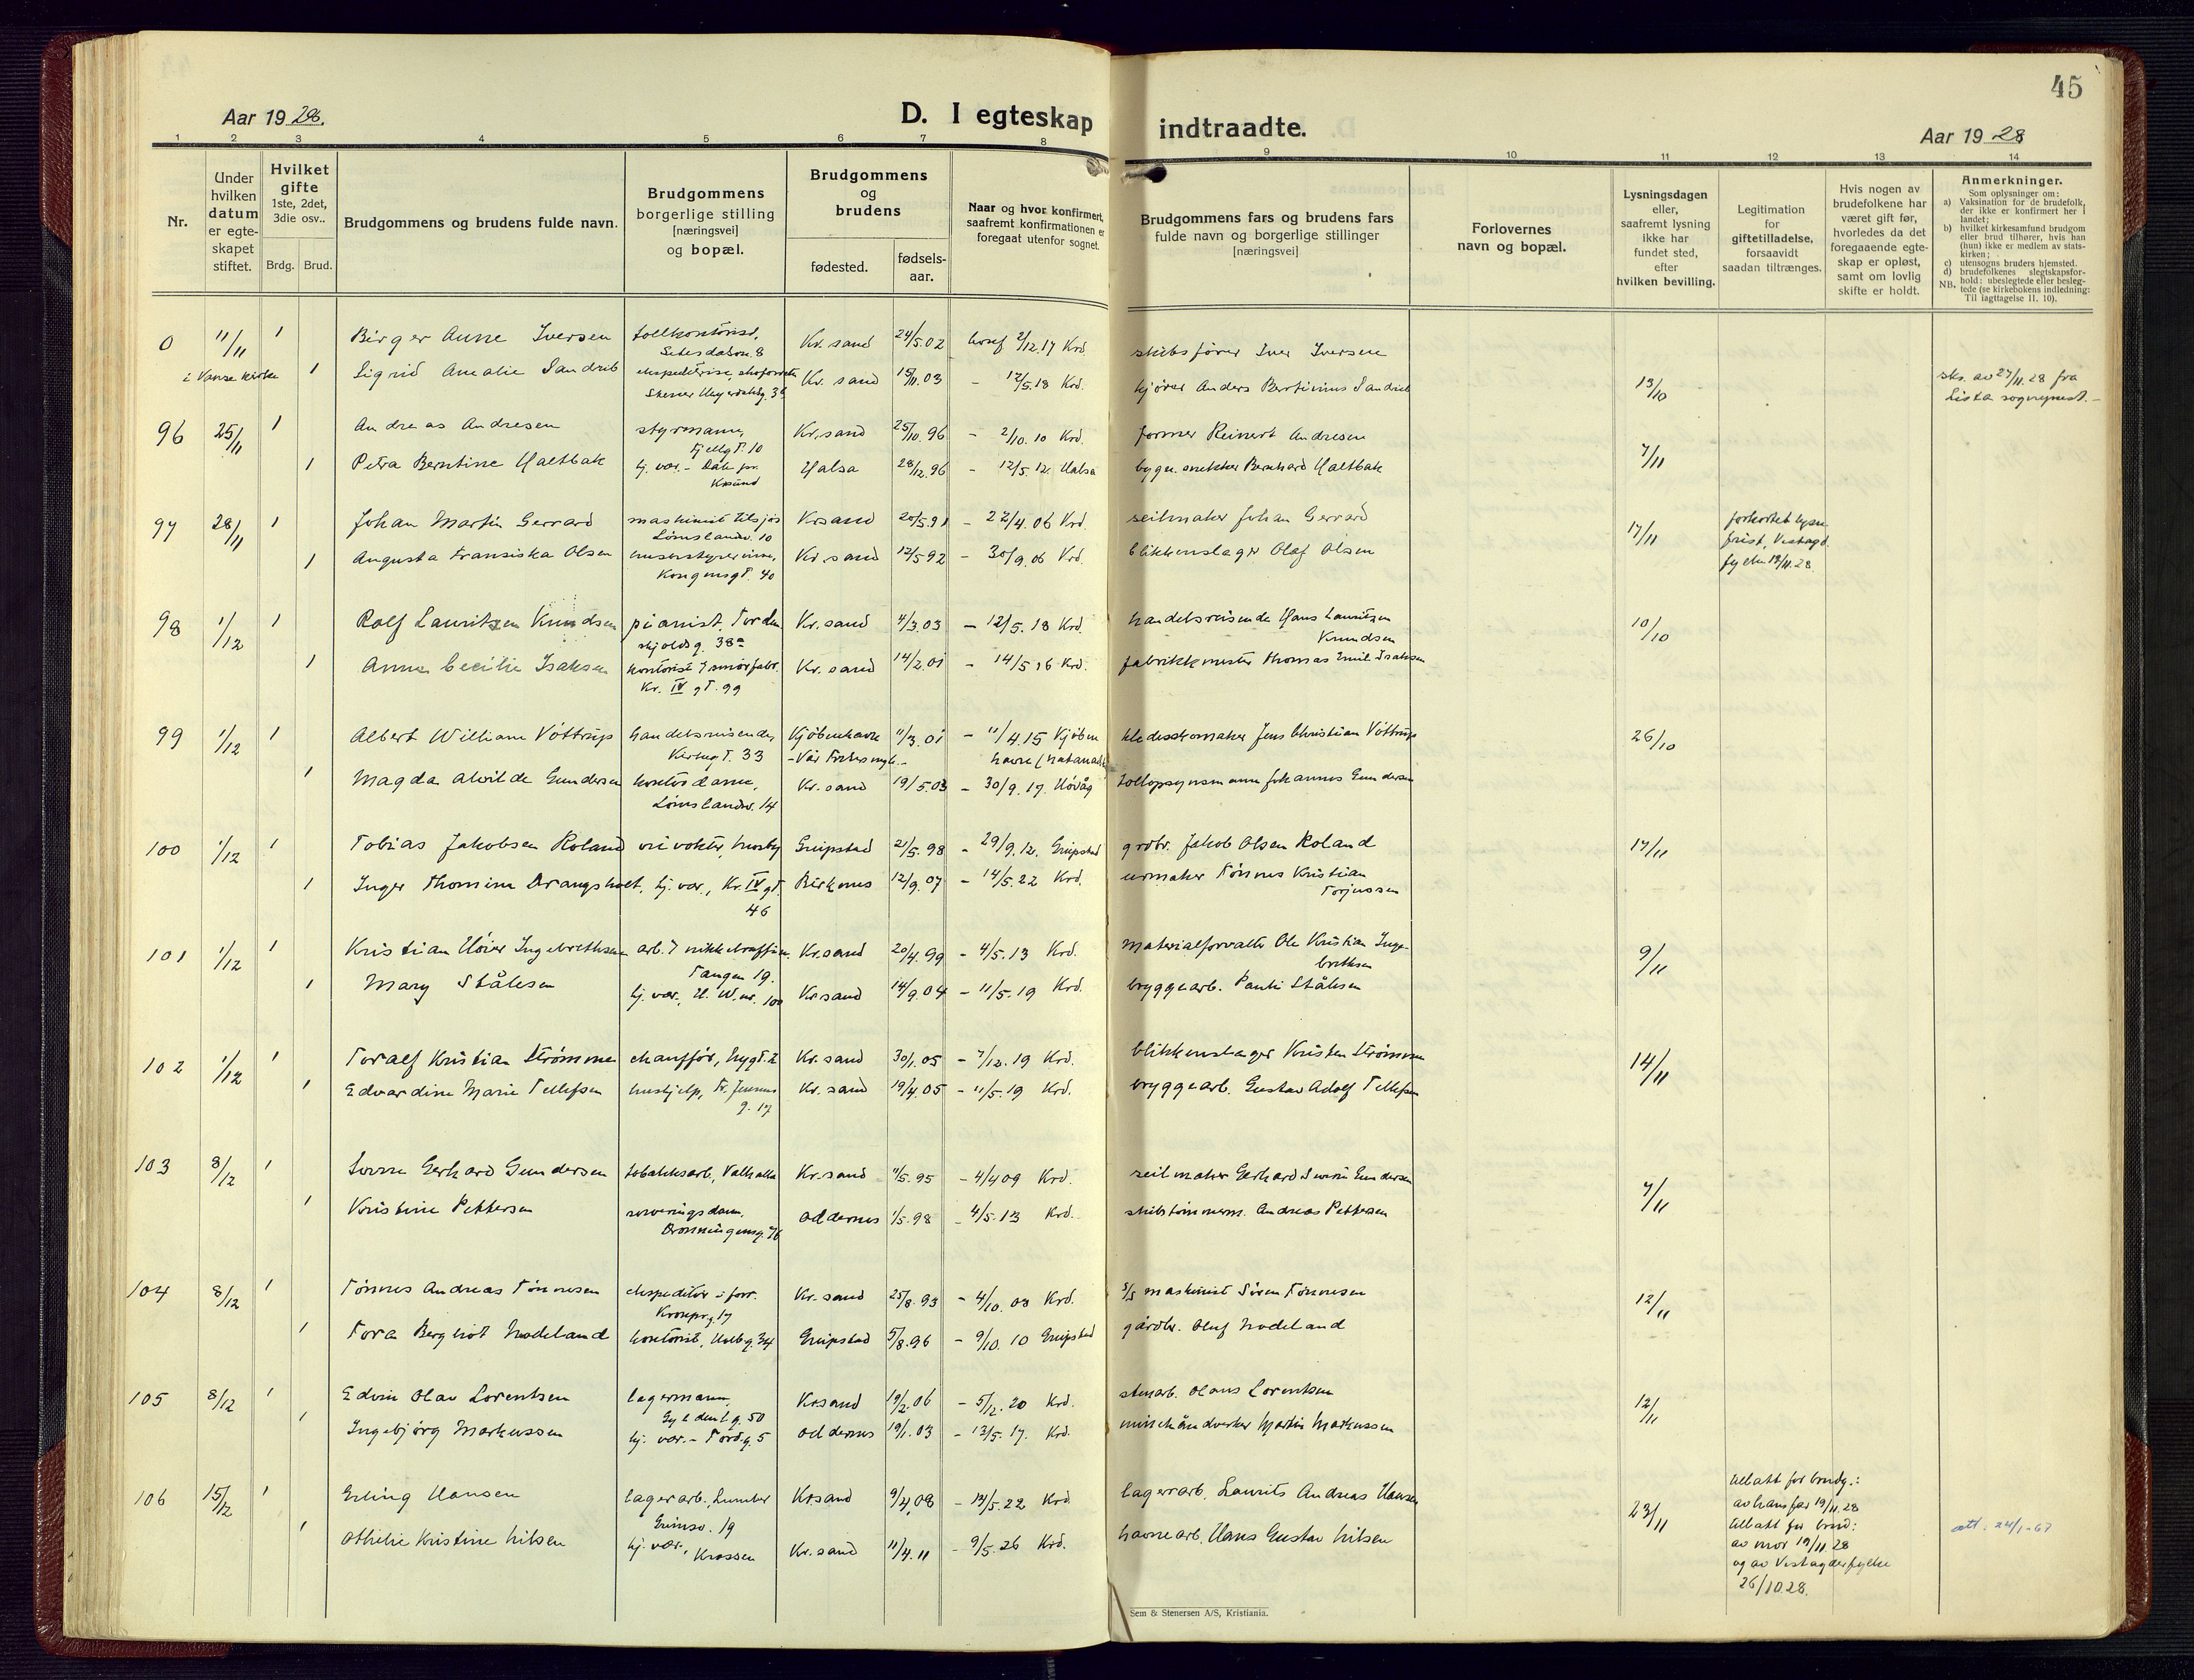 45
Aar 1928.
D. I egteskap indtraadte.
Aar 1928
1 2 3 4 5 6 7 8 9 10 11 12 13 14
Nr.
Under hvilken datum er egte- skapet stiftet.
Hvilket gifte 1ste, 2det, 3die osv..
Brdg. Brud.
Brudgommens og brudens fulde navn.
Brudgommens borgerlige stilling [næringsvei] og bopæl.
Brudgommens og brudens
fødested.
fødsels- aar.
Naar og hvor konfirmert, saafremt konfirmationen er foregaat utenfor sognet.
Brudgommens fars og brudens fars fulde navn og borgerlige stillinger [næringsvei]
Forlovernes navn og bopæl.
Lysningsdagen eller, saafremt lysning ikke har fundet sted, efter hvilken bevilling.
Legitimation for giftetilladelse, forsaavidt saadan tiltrænges.
Hvis nogen av brudefolkene har været gift før, hvorledes da det foregaaende egte- skap er opløst, samt om lovlig skifte er holdt.
Anmerkninger.
Som oplysninger om:
a) Vaksination for de brudefolk, der ikke er konfirmert her i landet;
b) hvilket kirkesamfund brudgom eller brud tilhører, hvis han (hun) ikke er medlem av stats- kirken;
c) utensogns bruders hjemsted.
d) brudefolkenes slegtskapsfor- hold: ubeslegtede eller besleg- tede (se kirkebokens indledning:
NB. Til iagttagelse II. 10).
0 11/11 1 Birger Anne Iversen tollkontorist, Setesdalsv. 8 Kr. sand 24/5.02 2/12.17 Krd. skibsfører Iver Iversen
i Vanse kirke 1 Sigrid Amalie Sandrib Kr. sand 15/11.03 - 12/5.18 Krd. kjører Anders Bertinius Sandrib 13/10 av 27/11.28 fra Lista sogneprest.-
96 25/11 Andreas Andresen styrmann, Fjellgt. 10 Kr.sand 25/10.96 - 2/10.10 Krd. former Reinert Andresen 7/11
1 Petra Berntine Haltbak hj. vær. - Krsund Halsa 28/12.96 - 12/5.12. Halsa bygn. snekker Bernhard Haltbak
97 28/11 1 Johan Martin Gerrard maskinist tilsjøs Lømslandsv. 10 Krsand 20/5.91 - 22/4.06 Krd. seilmaker Johan Gerrard 17/11 forkortet lysn. frist, Vestagd. fylke 19/11.28.
1 Augusta Fransiska Olsen husbestyrerinne, Kongensgt. 40 Kr. sand 12/5.92 - 30/9.06 Krd. blikkenslager Olaf Olsen
98 1/12 1 Rolf Lauritzen Knudsen pianist, Tordenskjoldsg. 38a Kr. sand 4/3.03 - 12/5.18 Krd. handelsreisende Hans Lauritzen Knudsen 10/10
1 Anna Cecilie Isaksen kontorist i smørfabr. Kr. IV gt. 99 Kr. sand 14/2.01 - 14/5.16 Krd. fabrikkmester Thomas Emil Isaksen
99 1/12 1 Albert William Vøttrup handelsreisende, Kirkegt. 33 Kjøbenhavn - Vår Frelsers - 11/3.01 - 11/4.15 Kjøbenhavn klædesskomaker Jens Christian Vøttrup 26/10
1 Magda Alvilde Gundersen kontordame, Lømslandsv. 14 Kr. sand 19/5.03 - 30/9.17. Høvåg tollopsynsmann Johannes Gundersen
100 1/12 1 Tobias Jakobsen Roland Mosby Greipstad 21/5.98 - 29/9.12. Greipstad grdbr. Jakob Olsen Roland 17/11
1 Inger Thomine Drangsholt, hj. vær., Kr. IV gt. 46 Birkenes 12/9.07 - 14/5.22 Krd. urmaker Tønnes Kristian Torjussen
101 1/12 1 Kristian Høier Ingebrethsen arb. i nikkelraffin. Tangen 19. Kr.sand 20/4.99 - 4/5.13 Krd. materialforvalter Ole Kristian Ingebrethsen 9/11
1 Mary Stålesen hj. vær., H. W. nr. 100 Kr.sand 14/9.04 - 11/5.19 Krd. bryggearb. Stålesen
102 1/12 1 Toralf Kristian Strømme chauffør, Nygt. 2 Kr. sand 30/1.05 - 7/12.19 Krd. blikkenslager Kristen Strømme 14/11
1 Edvardine Marie Tellefsen hushjelp, Fr. Jensens g. 17 Kr. sand 19/4.05 - 11/5.19 Krd. bryggearb. Gustav Adolf Tellefsen
103 8/12 1 Gerhard Gundersen tobakksarb., Valhalla Kr.sand 11/5.95 - 4/4 09 Krd. seilmaker Gerhard Gundersen 7/11
1 Kristine Pettersen serveringsdame, Dronningensg. Oddernes 1/5.98 - 4/5.13 Krd. skibstømmerm. Andreas Pettersen
104 8/12 1 Tønnes Andreas Tønnesen ekspeditør i forr. Kronprg. 17 Kr. sand 25/8.93 - 4/10.08 Krd. S/S maskinist Søren Tønnesen 12/11
1 Tora Bergliot Nodeland kontorist, Holbg. 34 Greipstad 5/8.96 - 9/10.10 Greipstad gårdbr. Oluf Nodeland
105 8/12 1 Edvin Olav Lorentsen lagermann, Gyldenl.g. 50 Krsand 19/2.06 - 5/12.20 Krd. stenarb. Olaus Lorentsen 12/11
1 Ingebjørg Markussen hj. vær. - Tordg. 5 Oddernes 19/1.03 - 13/5.17. Krd. Martin Markussen
106 15/12 1 Erling Hansen lagerarb., Lumber Grimsv. 19 Krsand 9/4.08 - 14/5.22 Krd. lagerarb. Laurits Andreas Hansen 23/11 tillatt for brudg.: av hans far 19/11.28 tillatt for brud: av mor 19/11.28 og av Vestagderfylke 26/10.28.
1 Othelie Kristine Nilsen hj. vær., Krossen Kr. sand 11/4.11 - 9/5.26 Krd. havnearb. Hans Gustav Nilsen att. 24/1-67
Sem & Stenersen A/S, Kristiania.